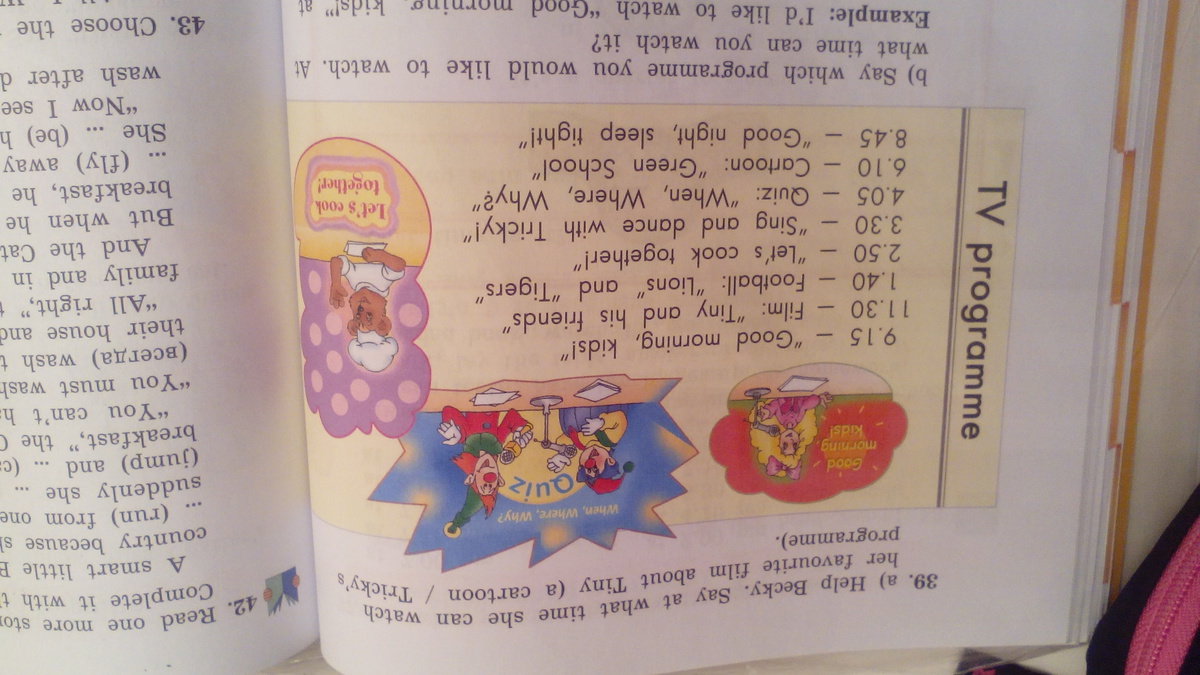 39. a) Help Becky. Say at what time she can watch
her favourite film about Tiny (a cartoon / Tricky's
programme).
TV programme
Good
morning
kids!
When, Where, Why?
Quiz
Let's cook
together!
9.15 – "Good morning, kids!"
11.30 – Film: "Tiny and his friends"
1.40 – Football: "Lions" and "Tigers"
2.50 – "Let's cook together!"
3.30 – "Sing and dance with Tricky!"
4.05 – Quiz: "When, Where, Why?"
6.10 – Cartoon: "Green School"
8.45 – "Good night, sleep tight!"
b) Say which programme you would like to watch. At
what time can you watch it?
Example: I'd like to watch "Good morning, kids!" at
42. Read one more
Complete it with
A smart little
country because
... (run) from one
suddenly she ...
(jump) and ...
breakfast," the
"You can't
"You must wash
(всегда) wash
their house and
"All right,"
family and in
And the
But when he
breakfast, he
... (fly) away
She ... (be)
"Now I see
wash after
43. Choose the